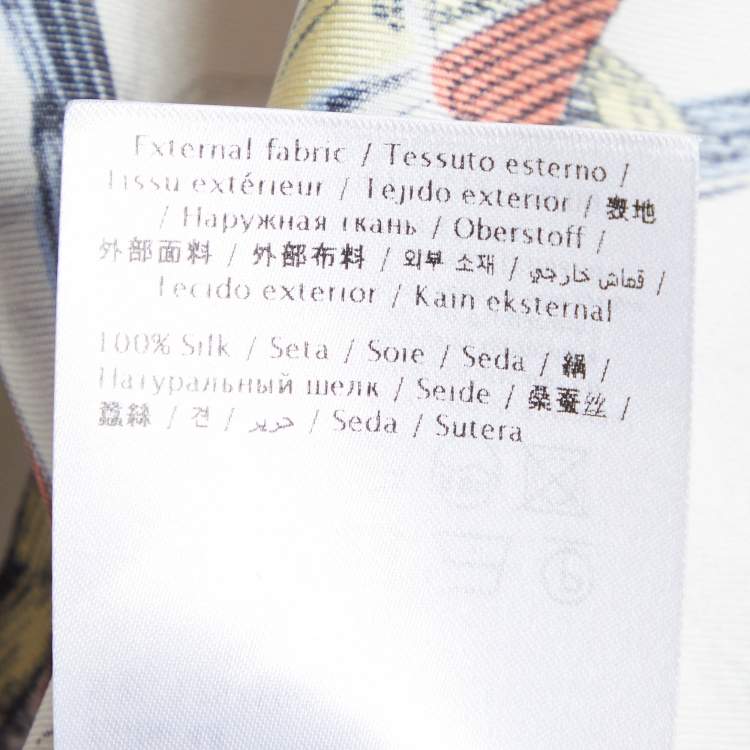 External fabric / Tessuto esterno /
Tissu extérieur / Tejido exterior / 表地
/ Наружная ткань / Oberstoff /
外部面料 / 外部布料 / 외부 소재 / قماش خارجي /
Tecido exterior / Kain eksternal
100% Silk / Seta / Soie / Seda / 絹 /
Натуральный шелк / Seide / 桑蚕丝 /
蠶絲 / 견 / حرير / Seda / Sutera